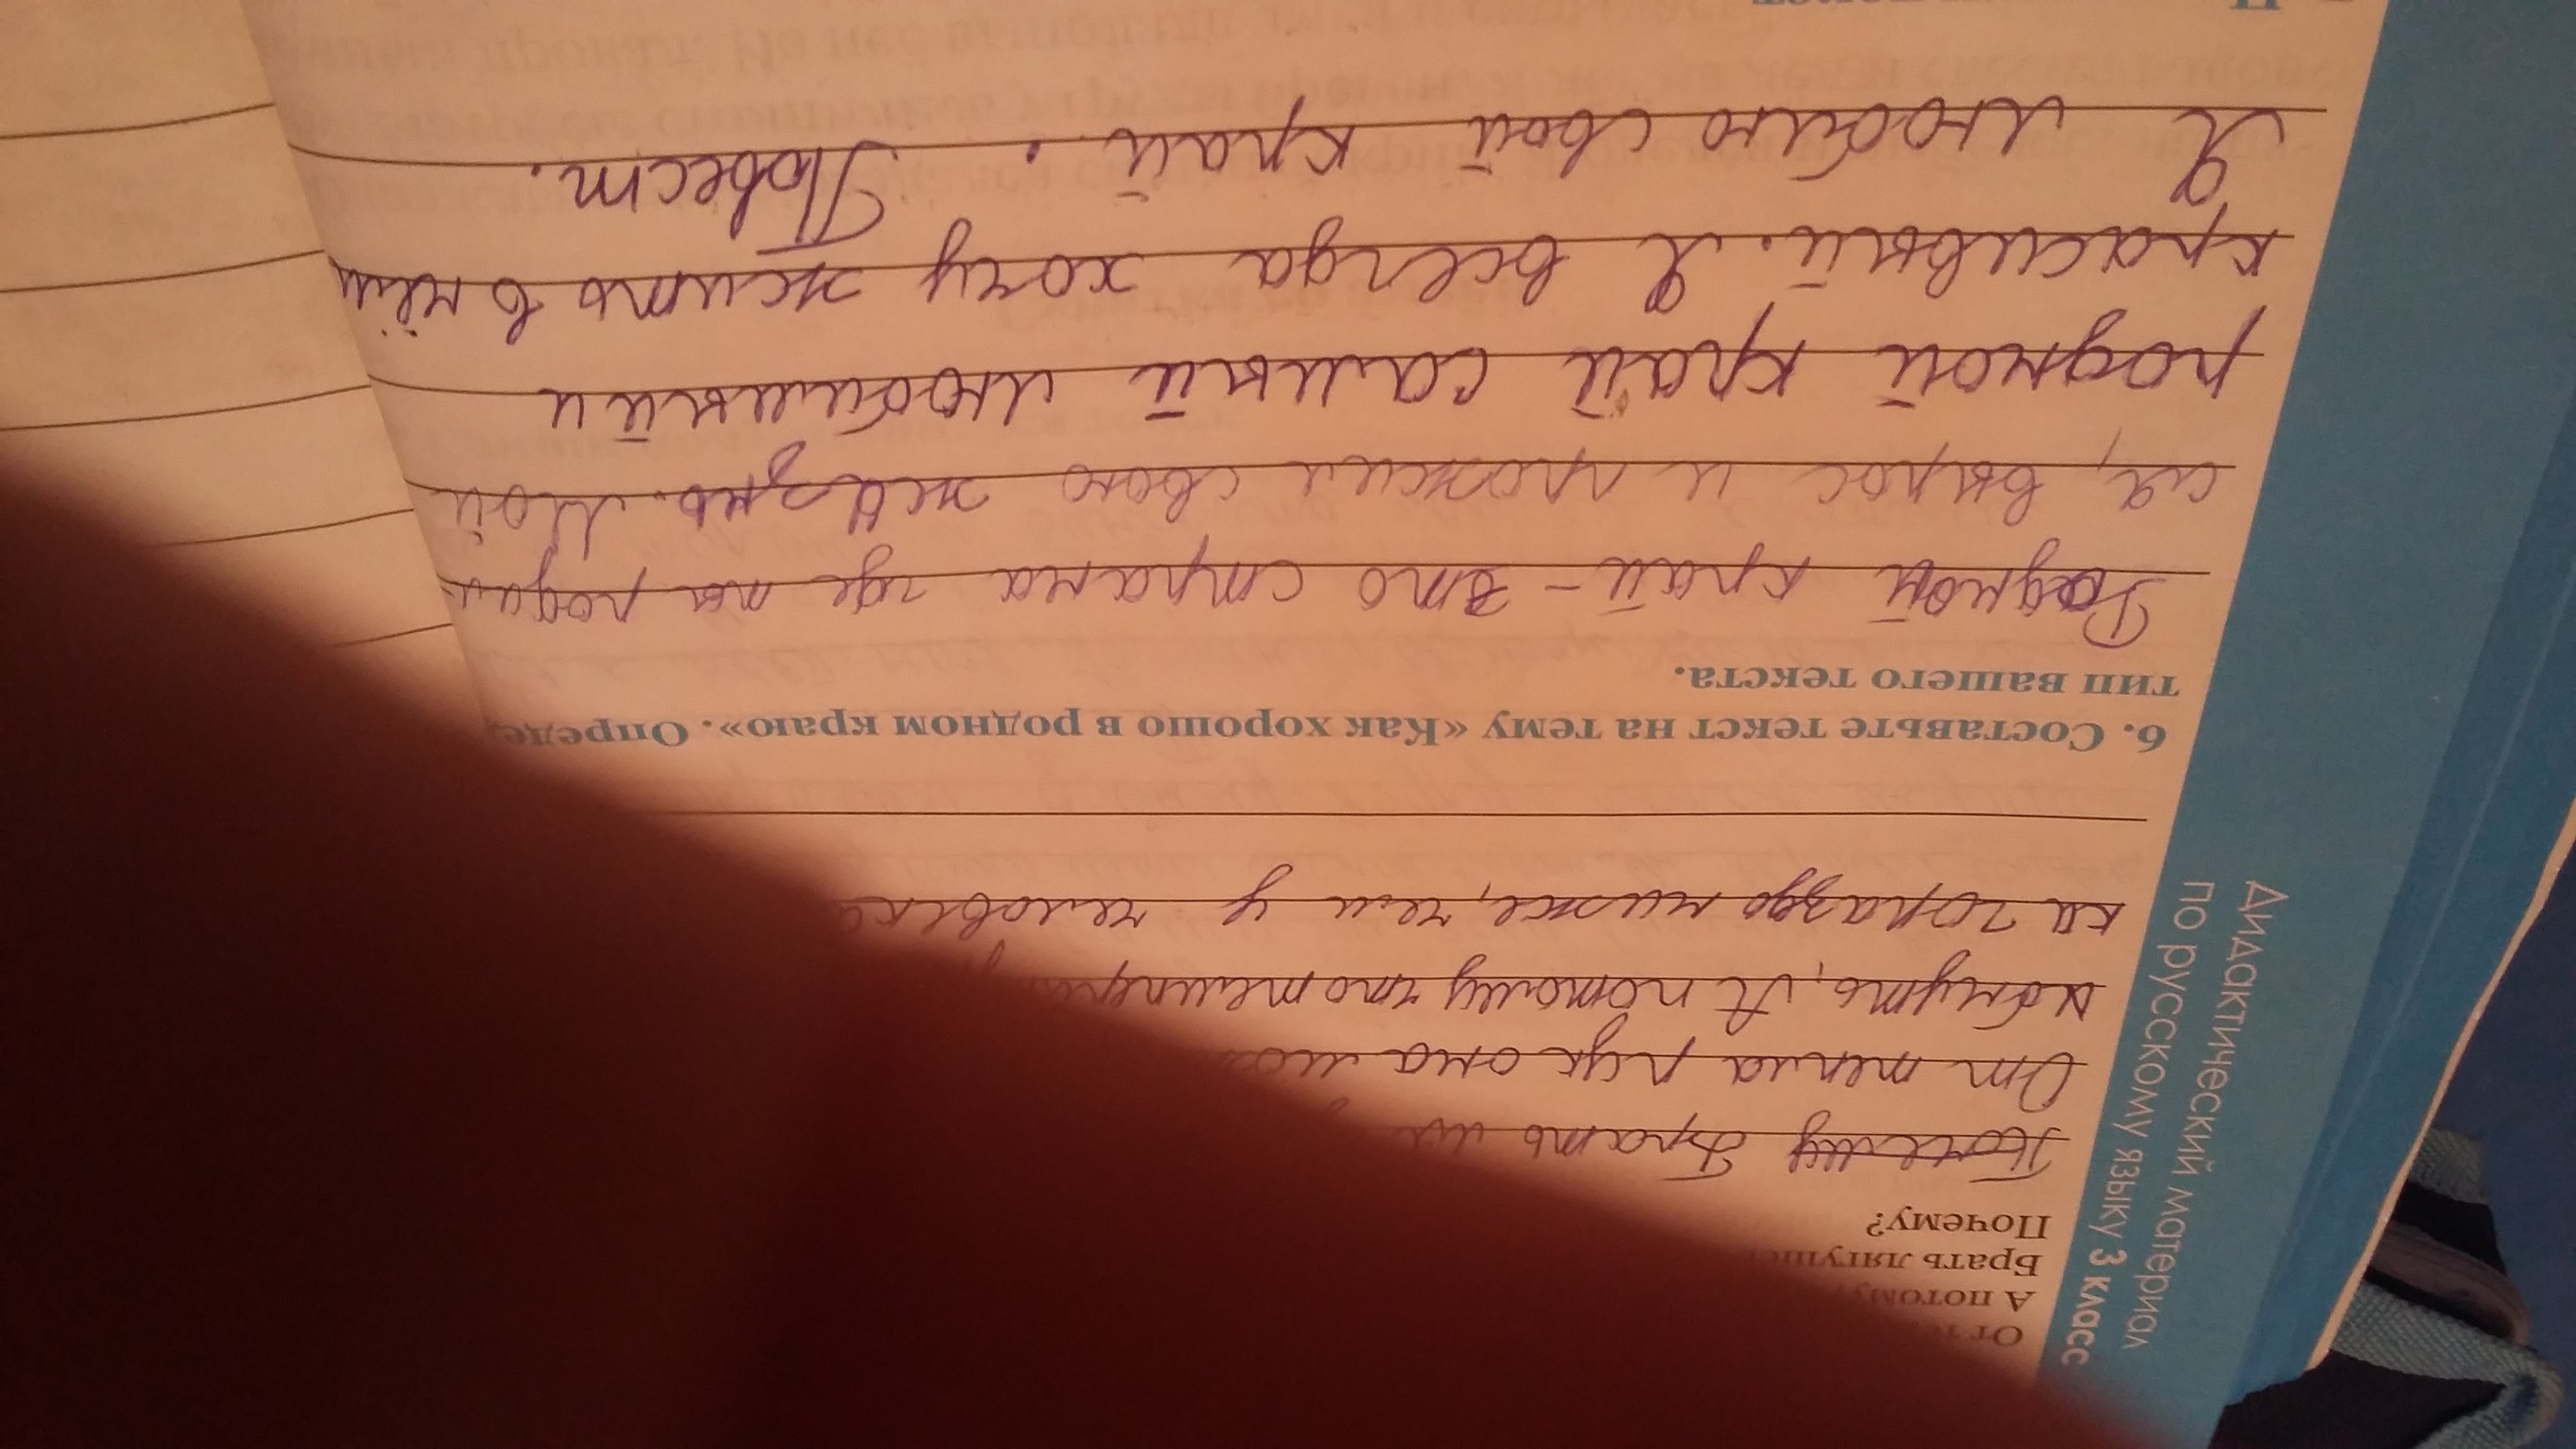 Дидактический материал
по русскому языку 3 класс
А потому
Брать лягуш
Почему?
Почему брать
От тепла рук она
А потому что
ка гораздо ниже, чем у человека
6. Составьте текст на тему «Как хорошо в родном краю». Опреде
тип вашего текста.
Родной край - это страна где ты родил-
ся, вырос и прожил свою жизнь. Мой
родной край самый любимый и
красивый. Я всегда хочу жить в нём
Я люблю свой край. Повест.